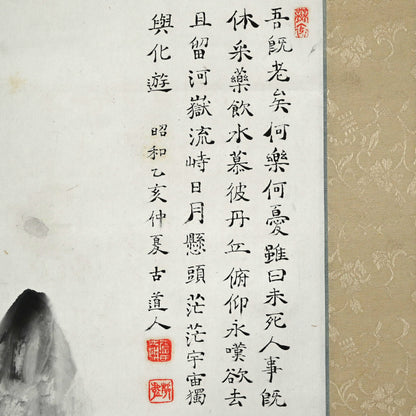 吾既老矣何樂何憂雖曰未死人事既
休采藥飲水慕彼丹丘俯仰永嘆欲去
且留河嶽流峙日月懸頭茫茫宇宙獨
與化遊 昭和乙亥仲夏古道人